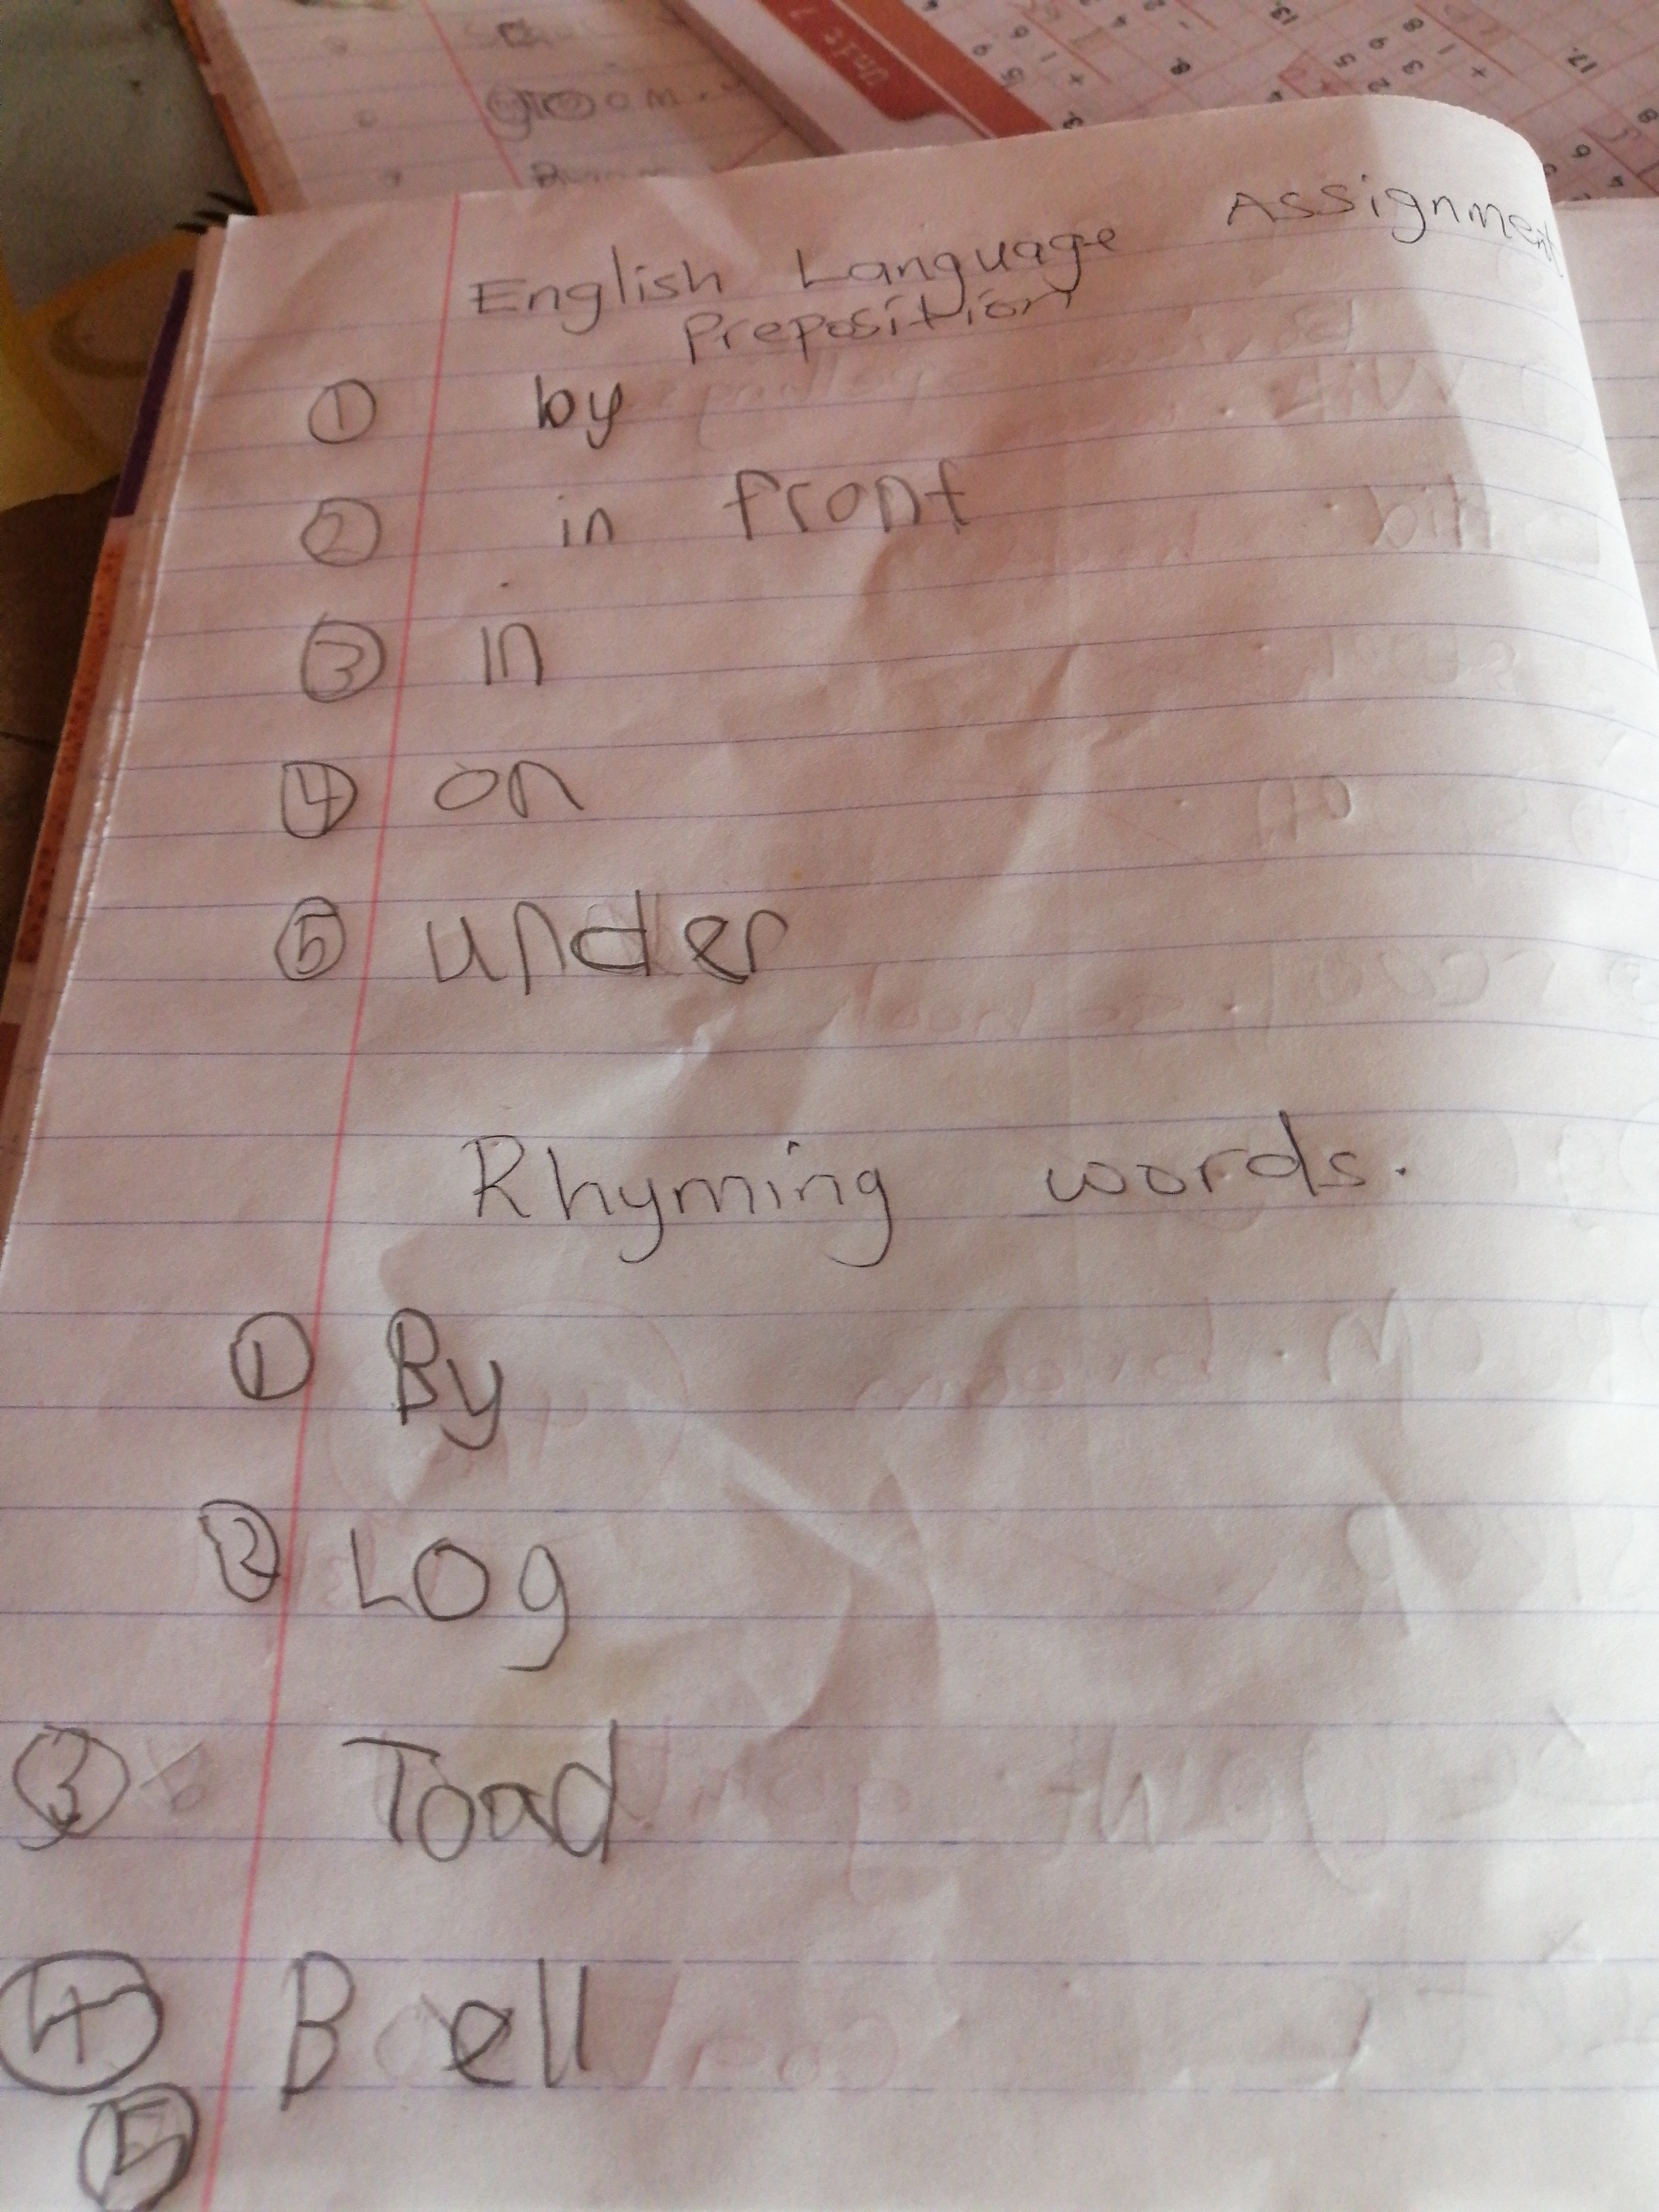 English Language Assignment
Preposition
① by
② in front
③ in
④ on
⑤ under
Rhyming words.
① By
② Log
③ Toad
④ Bell
⑤